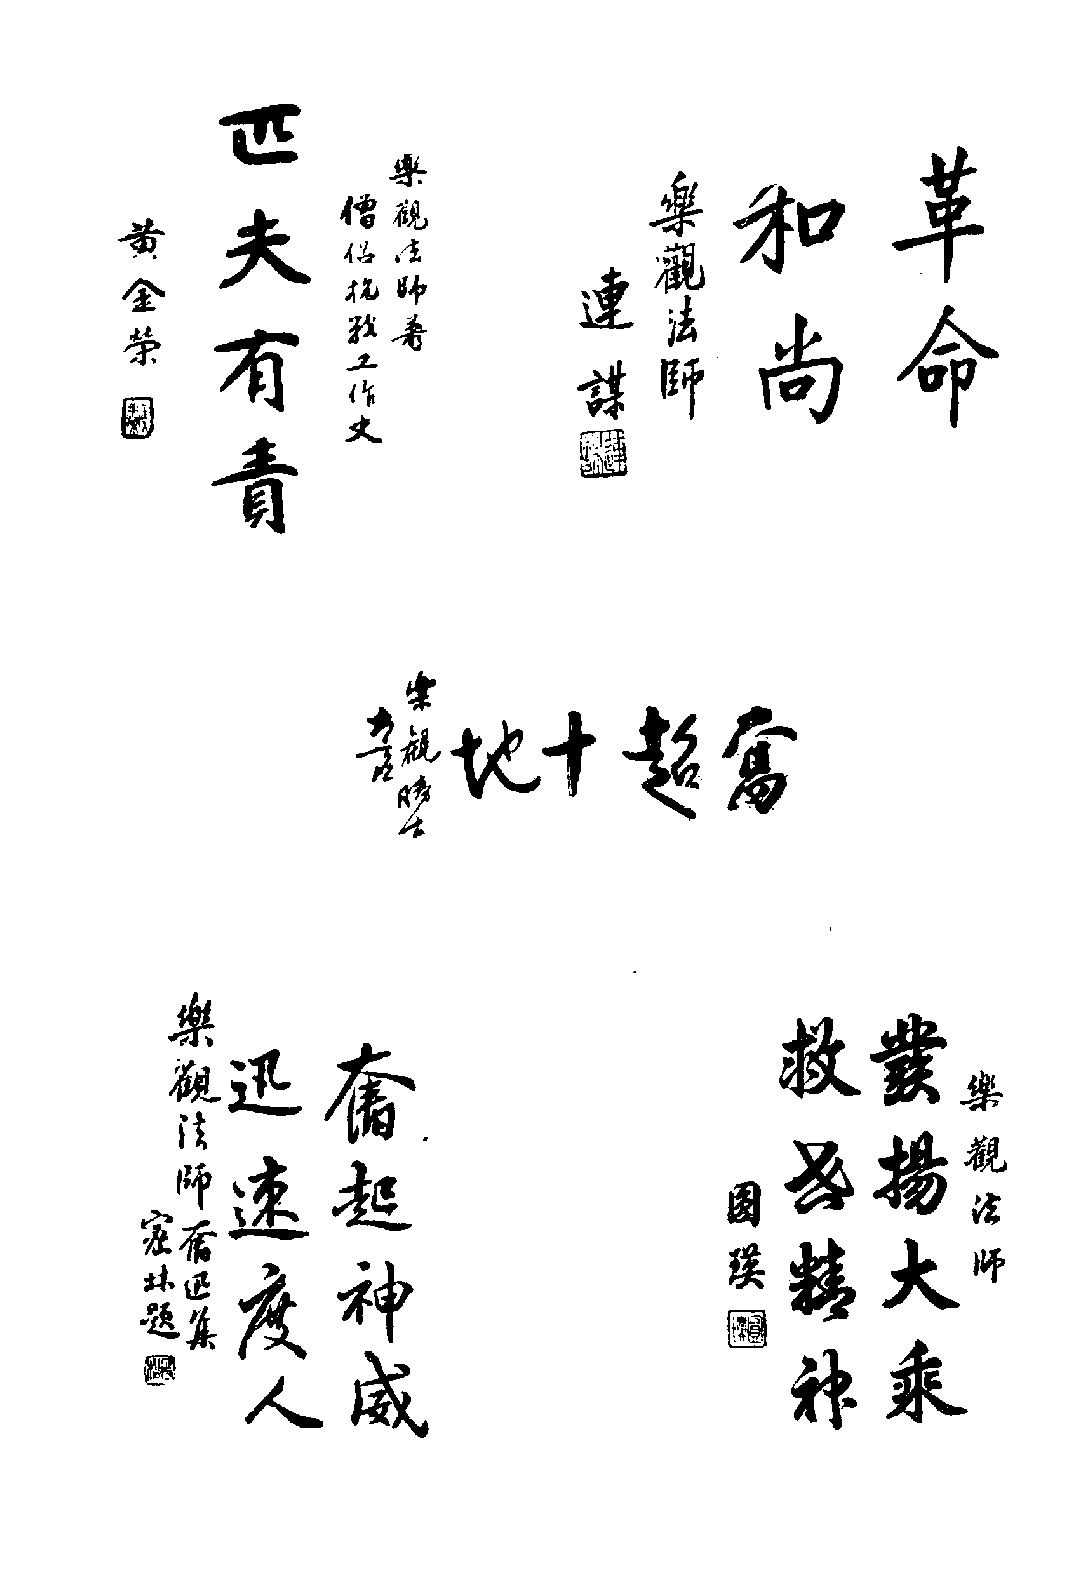 革命
和尚
樂觀法師
連謀
樂觀法師著
僧侶抗戰工作史
匹夫有責
黄金榮
奮超十地
樂觀勝士
樂觀法師
發揚大乘
救世精神
圓瑛
奮起神威
迅速度人
樂觀法師奮迅集
密林題